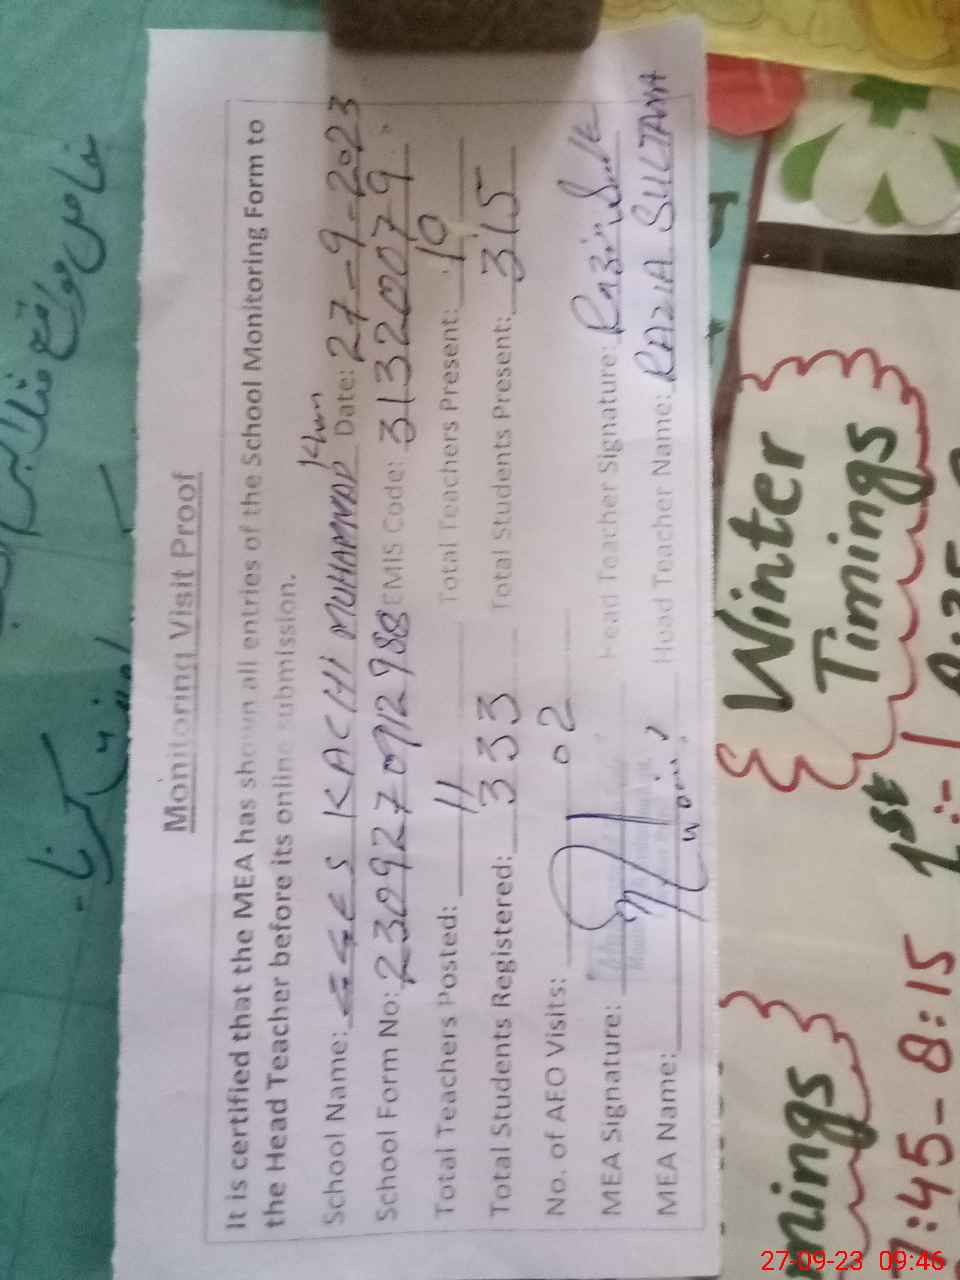 Monitoring Visit Proof
It is certified that the MEA has shown all entries of the School Monitoring Form to
the Head Teacher before its online submission.
School Name: GGES KACHI MUHAMMAD Khan Date: 27-9-2023
School Form No: 230927091298 EMIS Code: 31320079
Total Teachers Posted: 11 Total Teachers Present: 10
Total Students Registered: 333 Total Students Present: 315
No. of AEO Visits: 02
MEA Signature: Head Teacher Signature:
MEA Name: Head Teacher Name: RAZIA SULTANA
Winter
Timings
1st :-
mings
7:45-8:15
27-09-23 09:46